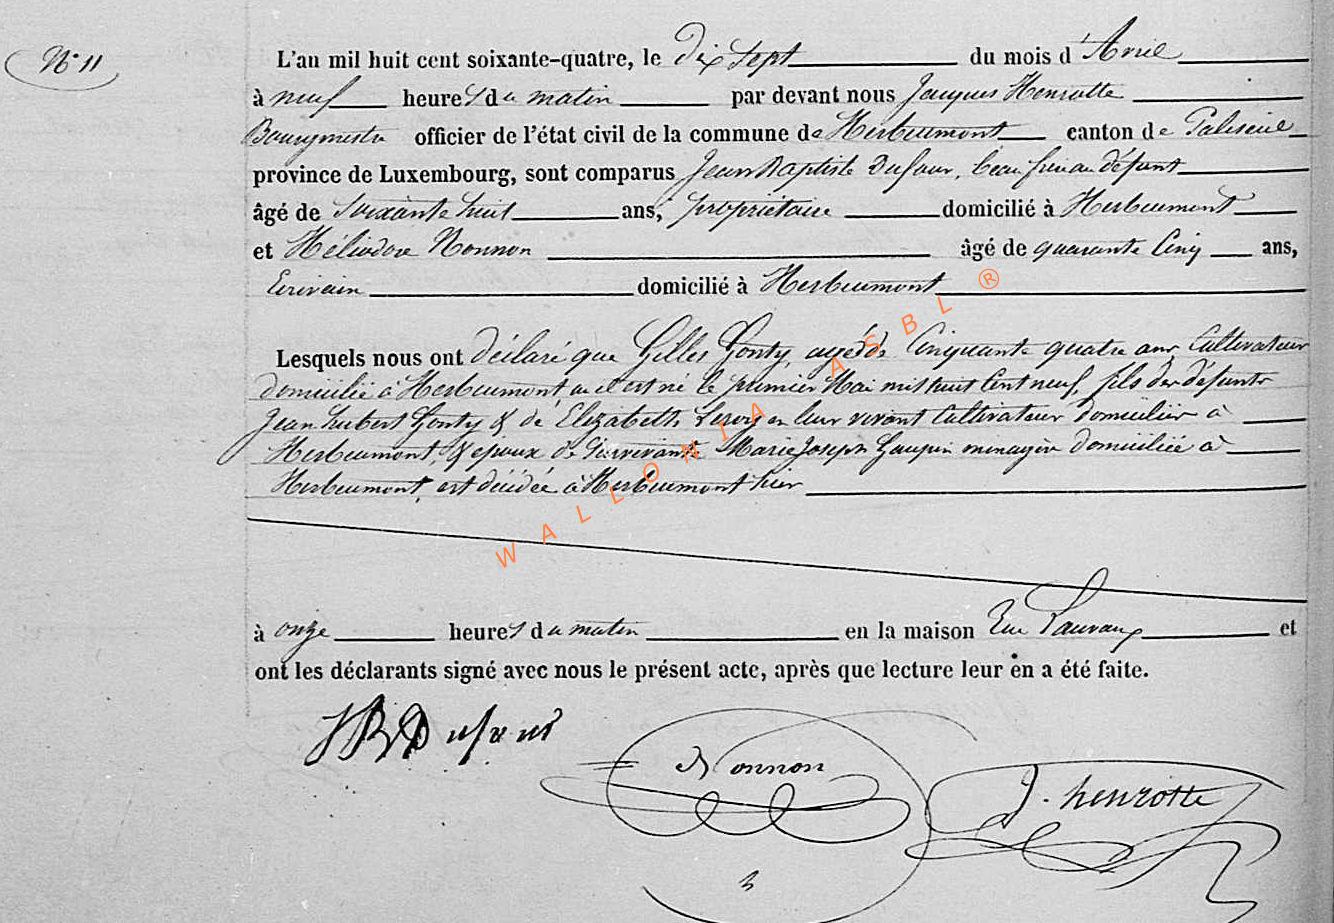 N° 11
L'an mil huit cent soixante-quatre, le dix Sept du mois d'Avril
à neuf heures du matin par devant nous Jacques Henrotte
Bourgmestre officier de l'état civil de la commune de Herbeumont canton de Paliseul
province de Luxembourg, sont comparus Jean Baptiste Dufour, beau frère au défunt
âgé de soixante huit ans, propriétaire domicilié à Herbeumont
et Héliodore Nonnon âgé de quarante Cinq ans,
Ecrivain domicilié à Herbeumont
Lesquels nous ont déclaré que Gilles Gonty, agé de Cinquante quatre ans, Cultivateur
domicilié à Herbeumont, où il est né le premier Mai mil huit Cent neuf, fils des défunts
Jean hubert Gonty & de Elizabeth en leur vivant Cultivateur domiciliés à
Herbeumont, & époux de Survivante Marie Joseph ménagère domiciliée à
Herbeumont, est décédée à Herbeumont hier
à onze heures du matin en la maison Rue et
ont les déclarants signé avec nous le présent acte, après que lecture leur en a été faite.
JB Dufour
Nonnon
J. henrotte
WALLONIA ASBL ®